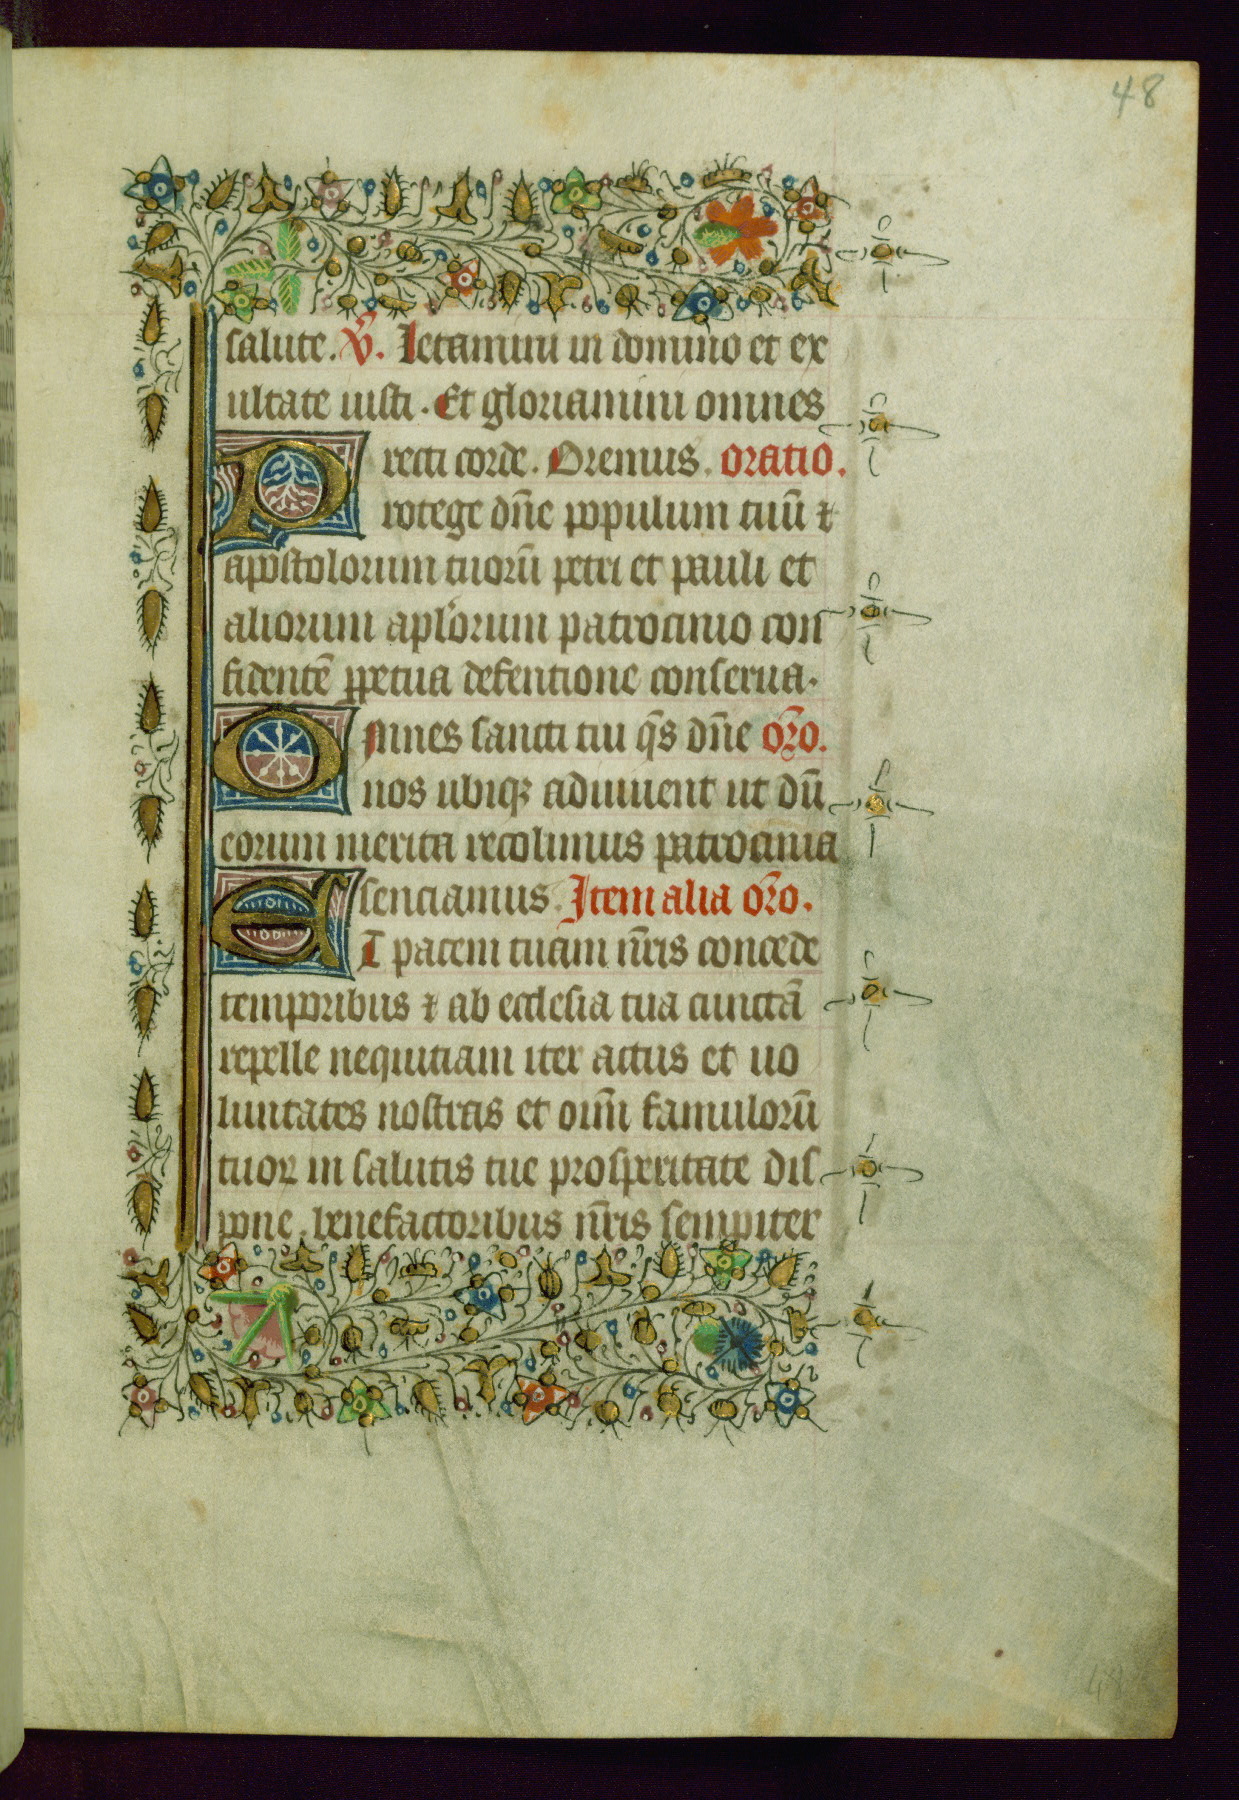 48
salute. V̄. Letamini in domino et ex
ultate iusti. Et gloriamini omnes
recti corde. Oremus. oratio.
Protege dn̄e populum tuū ⁊
apostolorum tuorū petri et pauli et
aliorum apl̄orum patrocinio con
fidentē ꝑpetua defentione conserua.
Omnes sancti tui q̄s dn̄e or̄o.
nos ubiqꝫ adiuuent ut dū
eorum merita recolimus patrocinia
senciamus. Item alia or̄o.
ET pacem tuam nr̄is concede
temporibus ⁊ ab ecclesia tua cunctā
repelle nequitiam iter actus et uo
luntates nostras et oīm famulorū
tuoꝝ in salutis tue prosperitate dis
pone. benefactoribus nr̄is sempiter
48